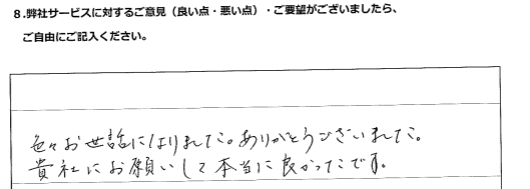 8.弊社サービスに対するご意見（良い点・悪い点）・ご要望がございましたら、
ご自由にご記入ください。
色々お世話になりました。ありがとうございました。
貴社にお願いして本当に良かったです。